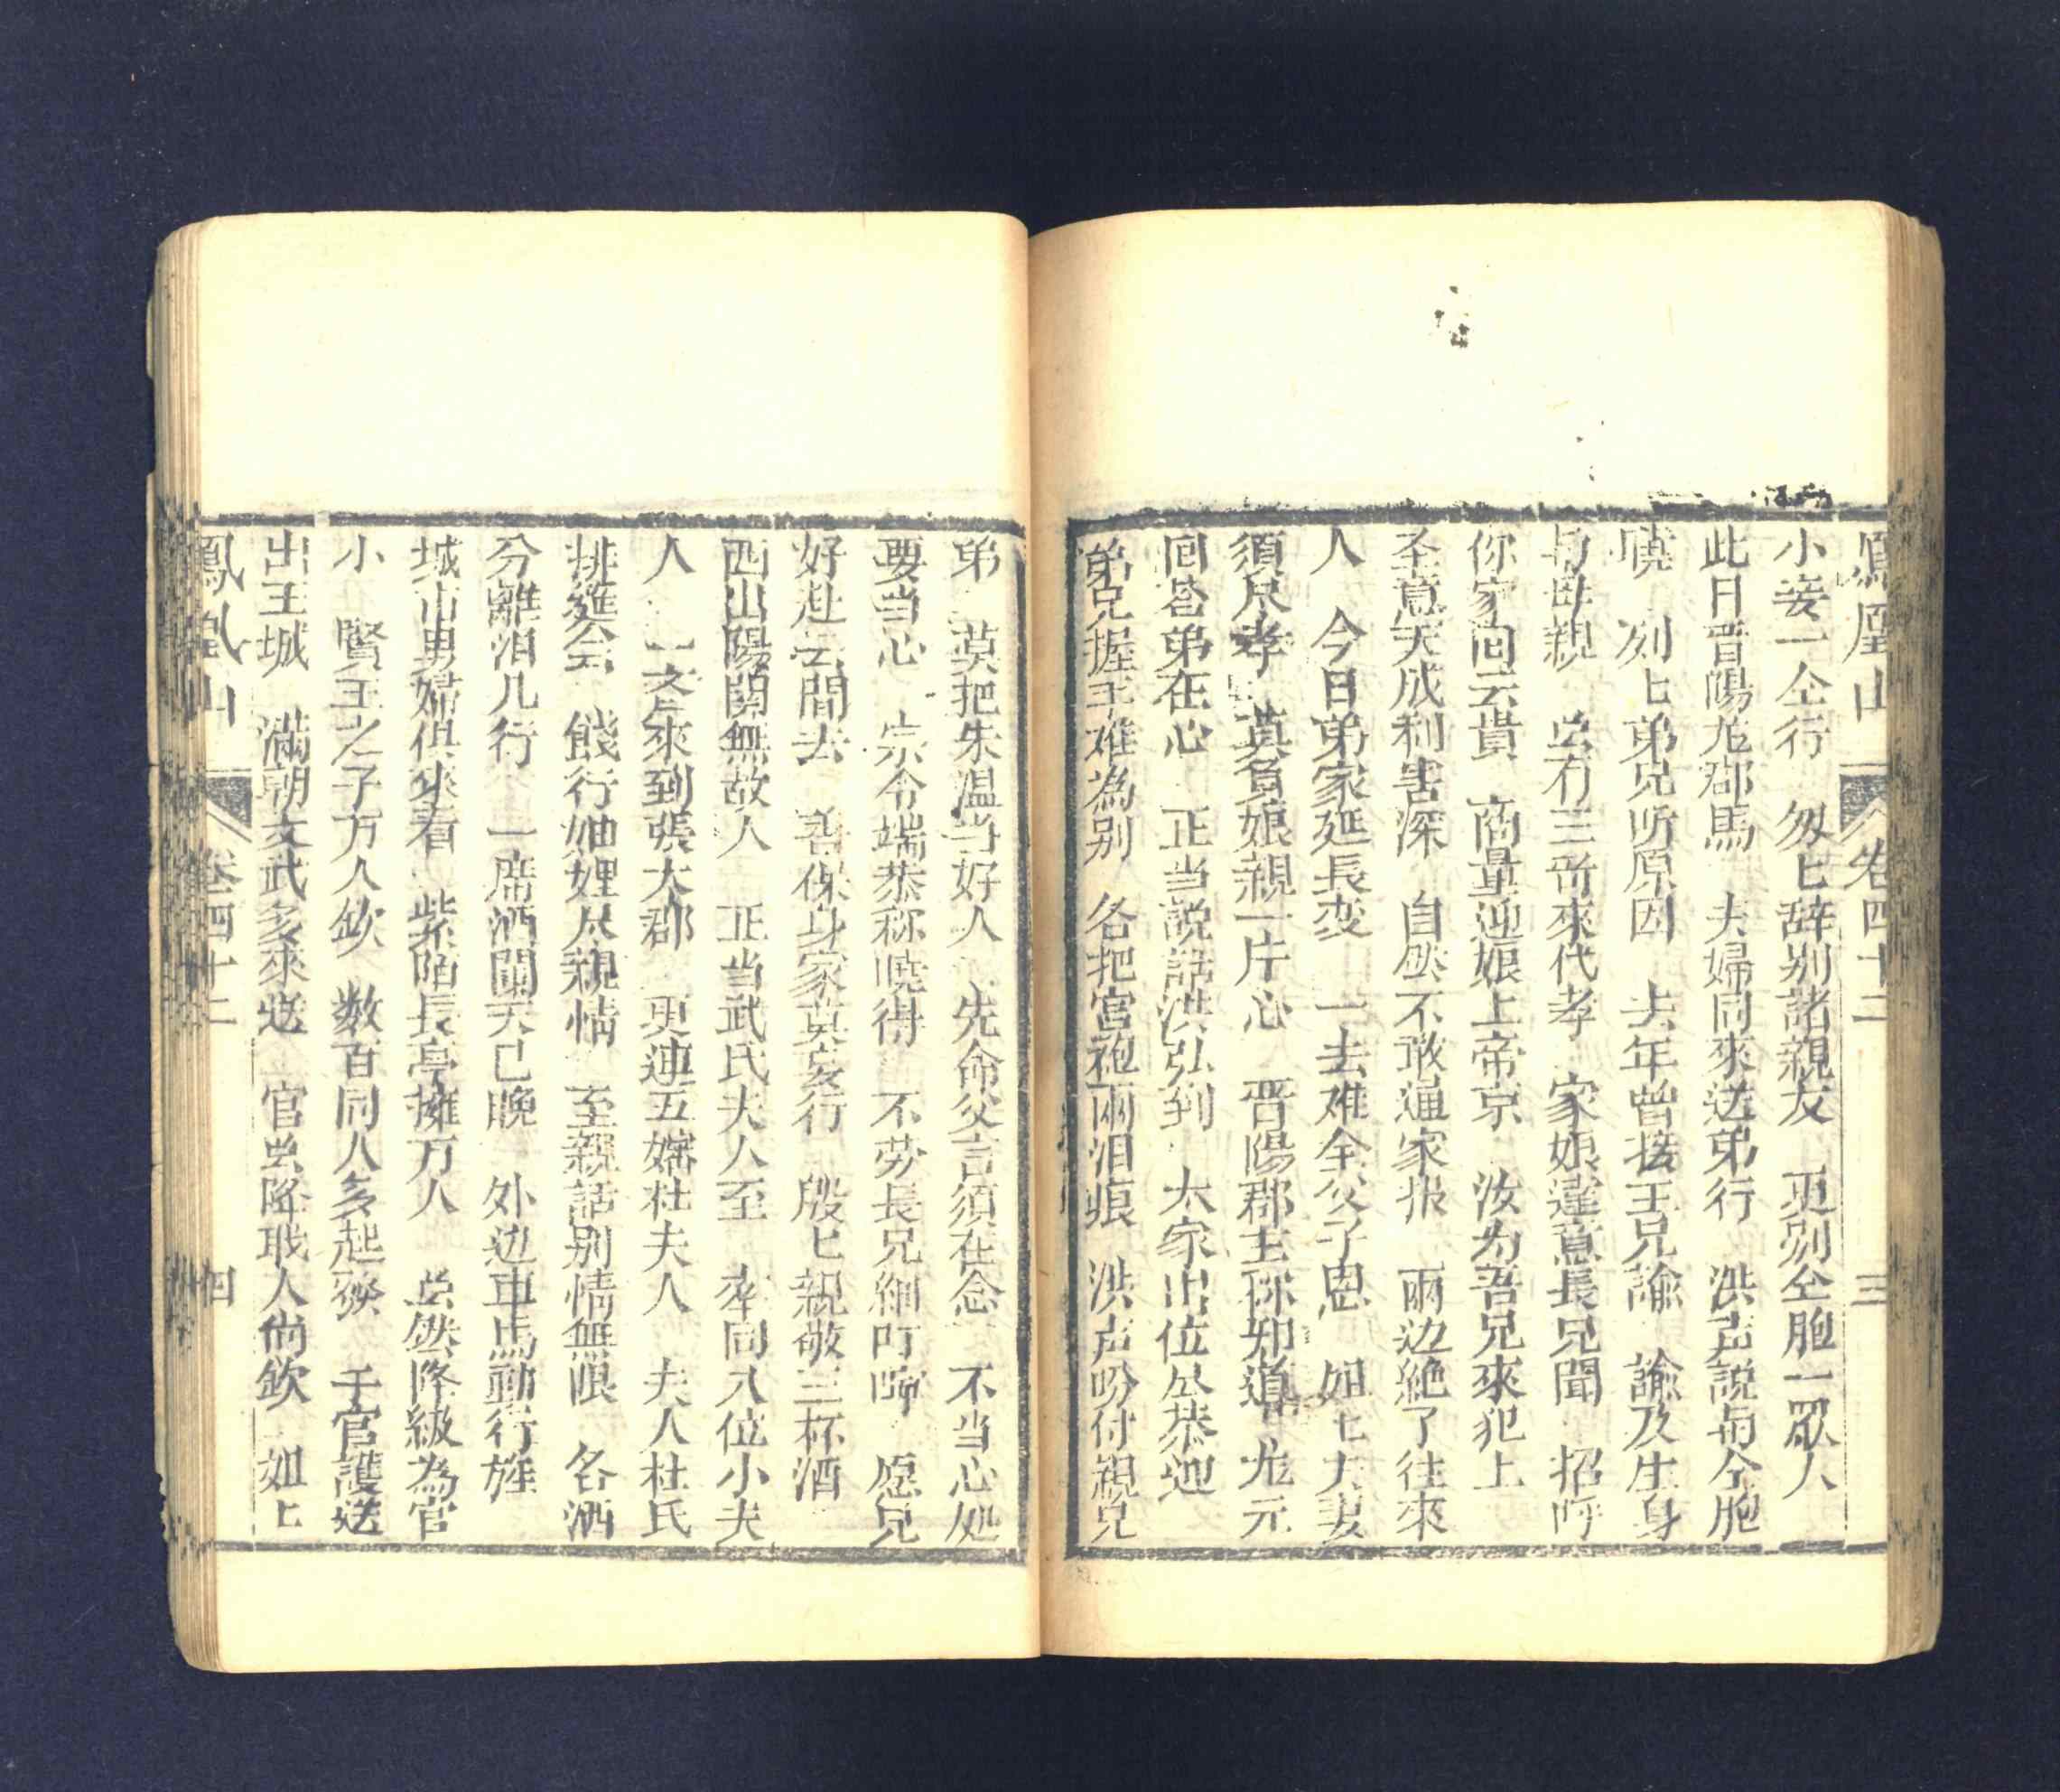 鳳凰山 卷四十二 三
小妾一仝行 匆匕辞别諸親友 更别仝胞一眾人
此日晋陽尤郡馬 夫婦同來送弟行 洪声説與仝胞
曉 列匕弟兄听原因 去年曾接王兄諭 諭及生身
與母親 並冇三哥來代孝 家娘違意長兄聞 招呼
你家回云貴 商量迎娘上帝京 汝為吾兄來犯上
圣意天成利害深 自然不敢逼家报 兩边絶了往來
人 今日弟家延長変 一去难全父子恩 姐匕大妻
須尽孝 莫負娘親一片心 晋陽郡主称知道 尤元
囬荅弟在心 正当説話洪弘到 大家出位尽恭迎
弟兄握手难為别 各把宫袍兩泪痕 洪声吩付親兄
弟 莫把朱温当好人 先命父言須在念 不当心処
要当心 宗令端恭称曉得 不劳長兄細叮嚀 愿兄
好赴云間去 善保身家莫妄行 殷匕親敬三杯酒
西出陽関無故人 正当武氏夫人至 率同八位小夫
人 一齐來到張大郡 更連五嬸杜夫人 夫人杜氏
排筵会 餞行妯娌尽親情 至親話别情無限 各洒
分離泪几行 一席酒闌天已晚 外边車馬動行旌
城市男婦俱來看 紫陌長亭擁万人 虽然降級為官
小 賢王之子万人欽 数百同人多起程 千官護送
出王城 滿朝文武多來送 官虽降职人尚欽 姐匕
鳳凰山 卷四十二 四